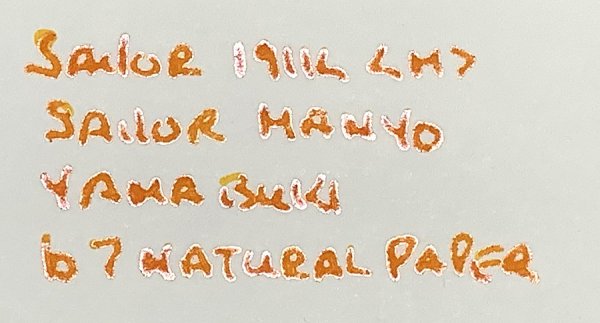 Sailor 1911L <M>
SAILOR MANYO
YAMABUKI
67 NATURAL PAPER